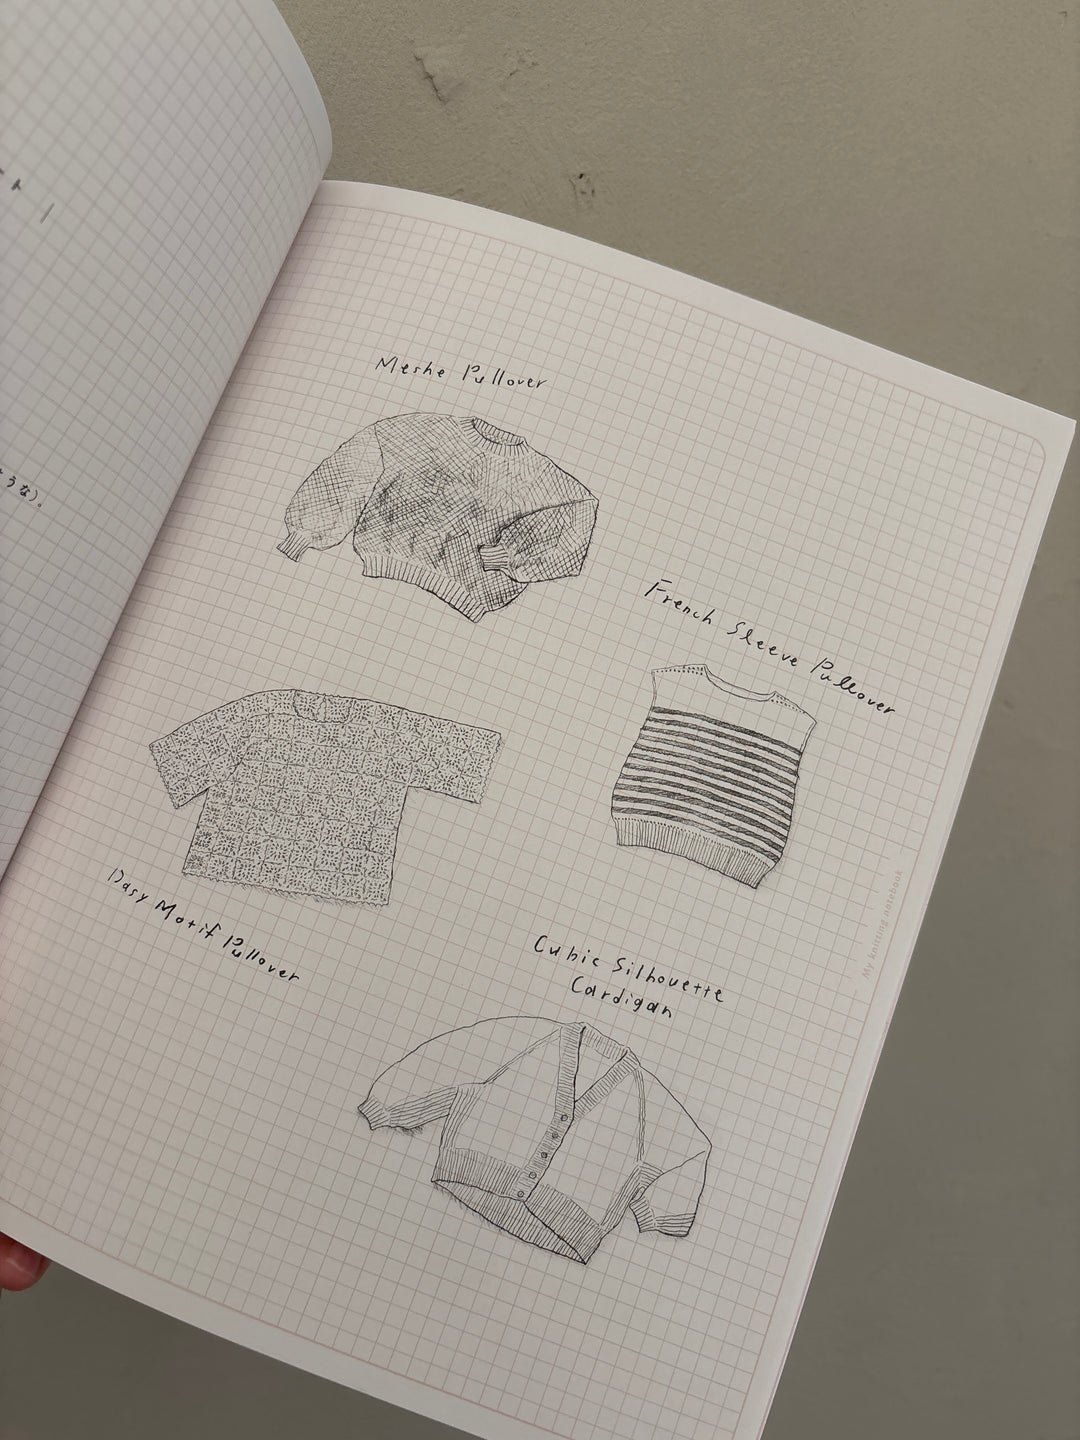 ト
うな)。
Meshe Pullover
French Sleeve Pullover
Dasy Motif Pullover
Cubic Silhouette
Cardigan
My knitting notebook